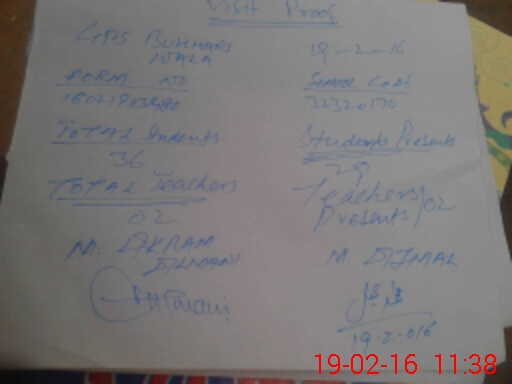 Visit Proof
GPS BUKHARI
WALA
19-2-16
FORM NO
SCHOOL CODE
32320170
TOTAL Students
36
Students Presents
29
TOTAL Teachers
02
Teachers
Presents 02
M. AKRAM
M. AJMAL
19-2-016
19-02-16 11:38